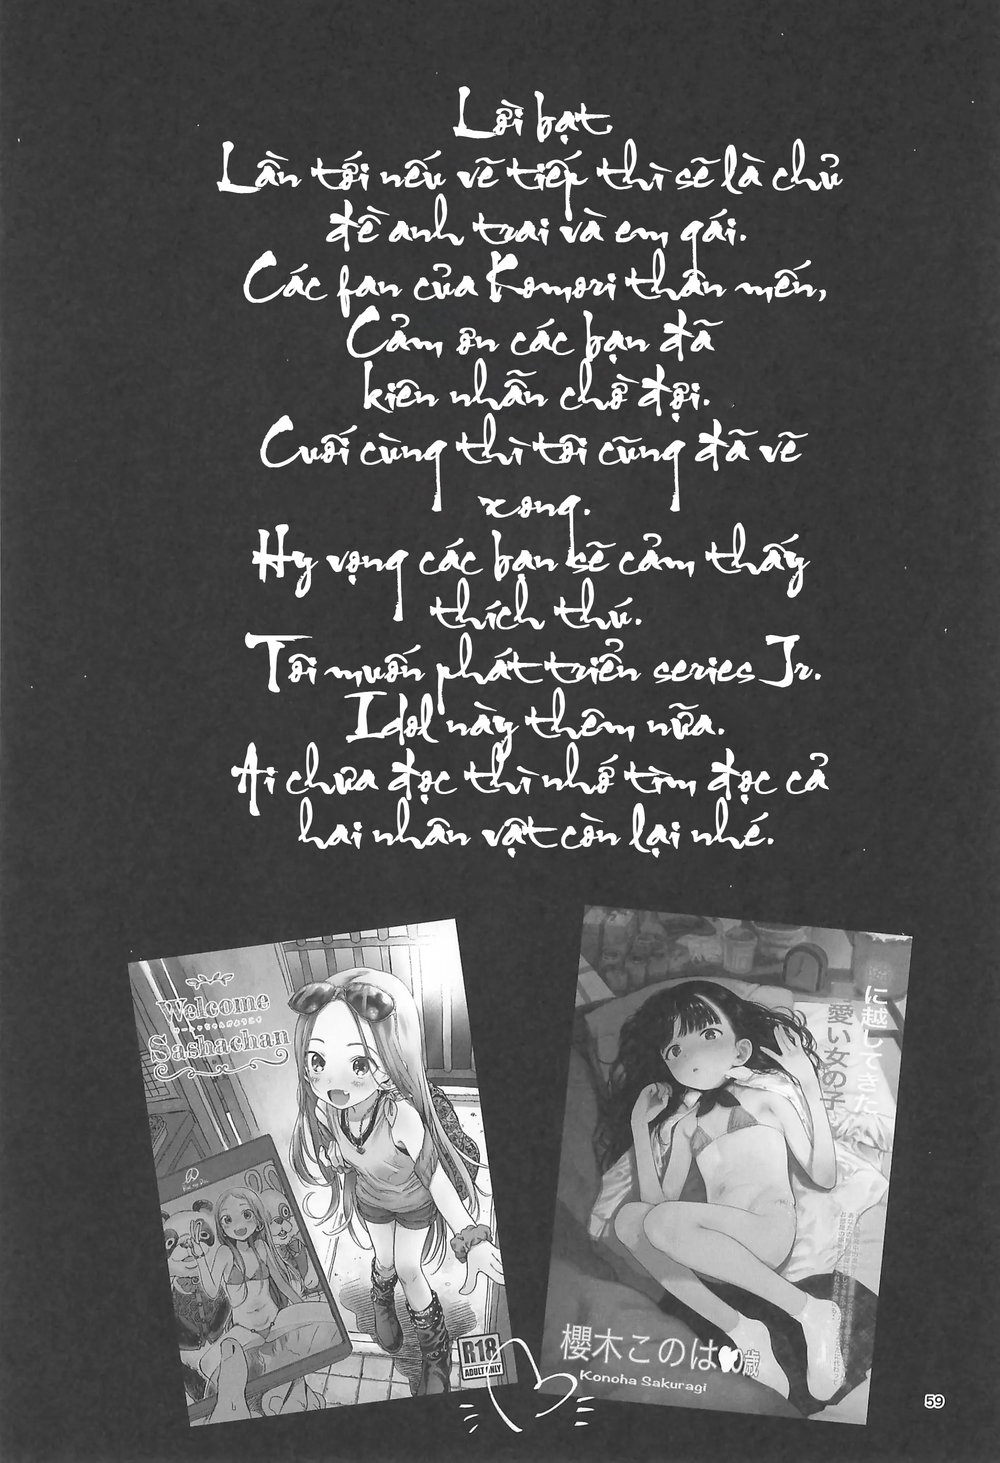 Lời bạt
Lần tới nếu vẽ tiếp thì sẽ là chủ
đề anh trai và em gái.
Các fan của Komori thân mến,
Cảm ơn các bạn đã
kiên nhẫn chờ đợi.
Cuối cùng thì tôi cũng đã vẽ
xong.
Hy vọng các bạn sẽ cảm thấy
thích thú.
Tôi muốn phát triển series Jr.
Idol này thêm nữa.
Ai chưa đọc thì nhớ tìm đọc cả
hai nhân vật còn lại nhé.
Welcome
Sashachan
R18
ADULT ONLY
に越してきた
愛い女の子
櫻木このは
歳
Konoha Sakuragi
59